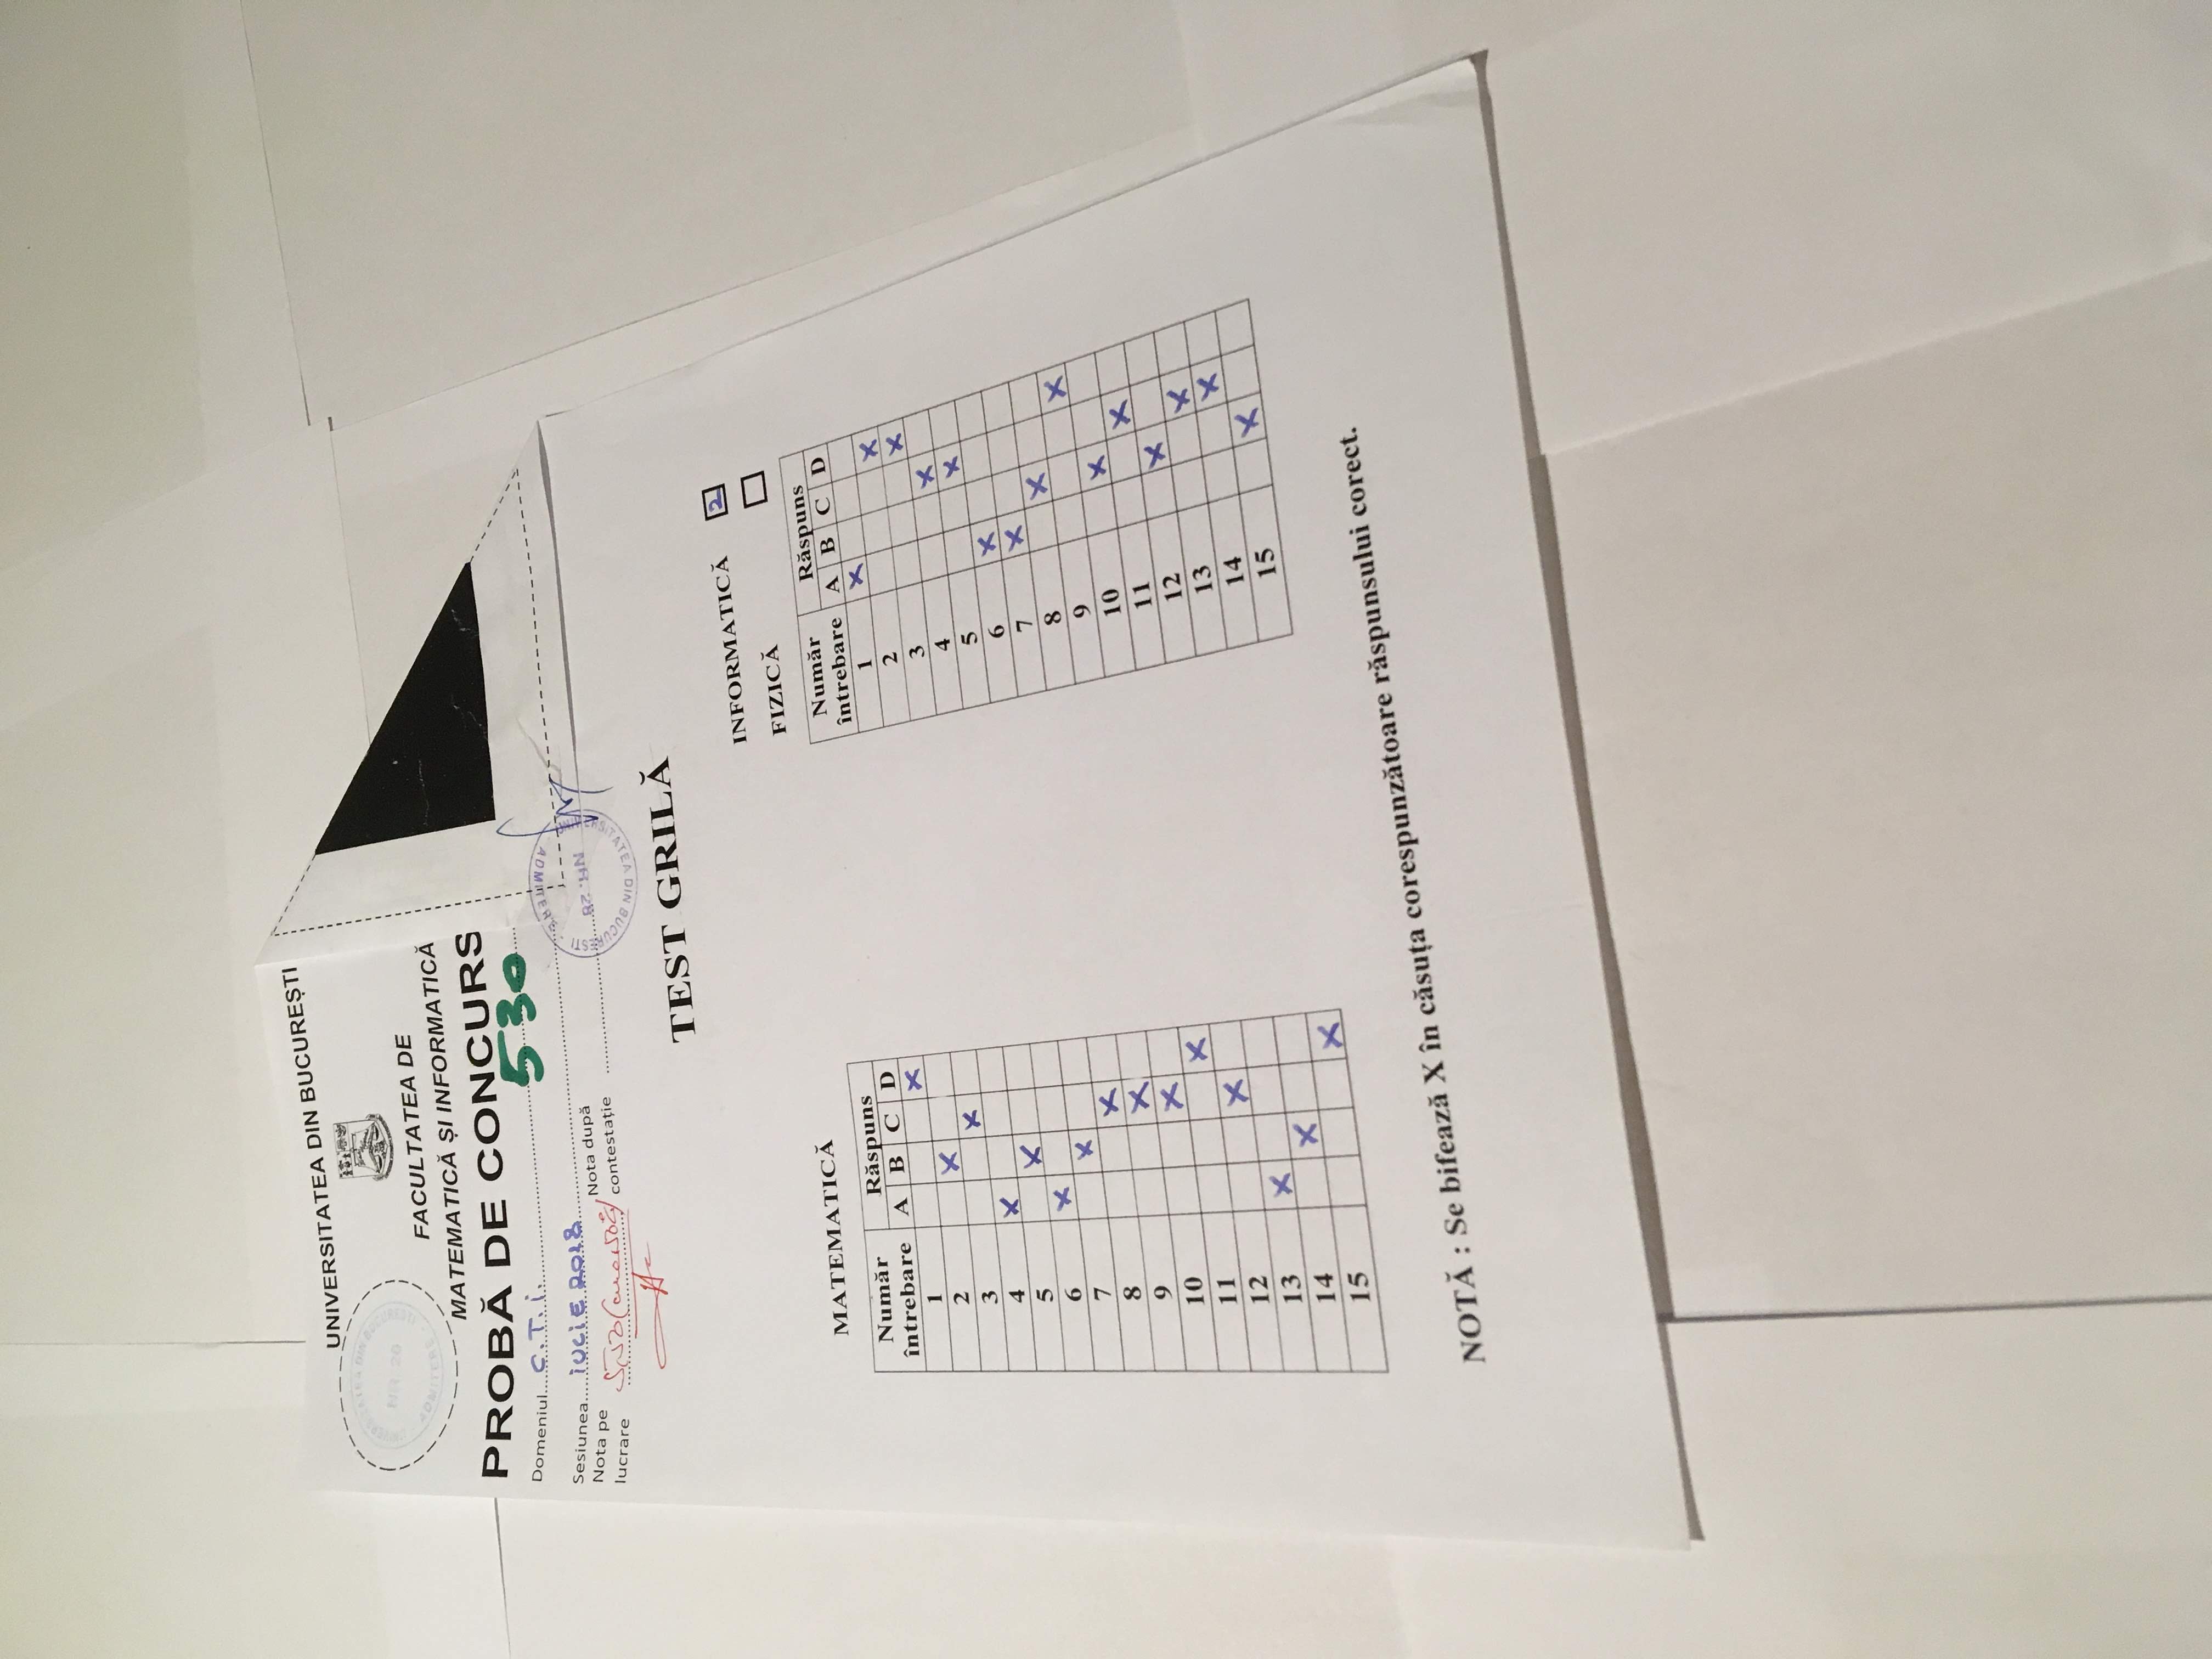 UNIVERSITATEA DIN BUCUREȘTI
UNIVERSITATEA DIN BUCUREȘTI
NR. 20
ADMITERE
FACULTATEA DE
MATEMATICĂ ȘI INFORMATICĂ
PROBĂ DE CONCURS
530
Domeniul C.T.i.
Sesiunea iULiE 2018
Nota pe lucrare 5,30
Nota după contestație
UNIVERSITATEA DIN BUCUREȘTI
NR. 28
ADMITERE
TEST GRILĂ
INFORMATICĂ 2
FIZICĂ
MATEMATICĂ
Număr întrebare Răspuns
A B C D
1 X
2 X
3 X
4 X
5 X
6 X
7 X
8 X
9 X
10 X
11 X
12 X
13 X
14 X
15 X
Număr întrebare Răspuns
A B C D
1 X
2 X
3 X
4 X
5 X
6 X
7 X
8 X
9 X
10 X
11 X
12 X
13 X
14 X
15 X
NOTĂ : Se bifează X în căsuța corespunzătoare răspunsului corect.